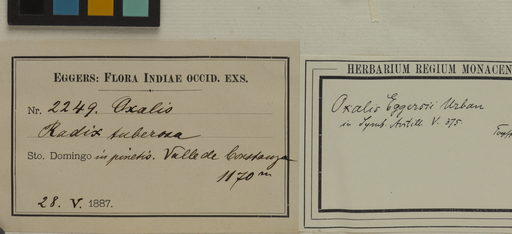 EGGERS: FLORA INDIAE OCCID. EXS.
Nr. 2249. Oxalis
Radix tuberosa
Sto. Domingo in pinetis. Valle de Constanza
1170 m
28. V. 1887.
HERBARIUM REGIUM MONACEN
Oxalis Eggersii Urban
in Symb. Antill. V. 375